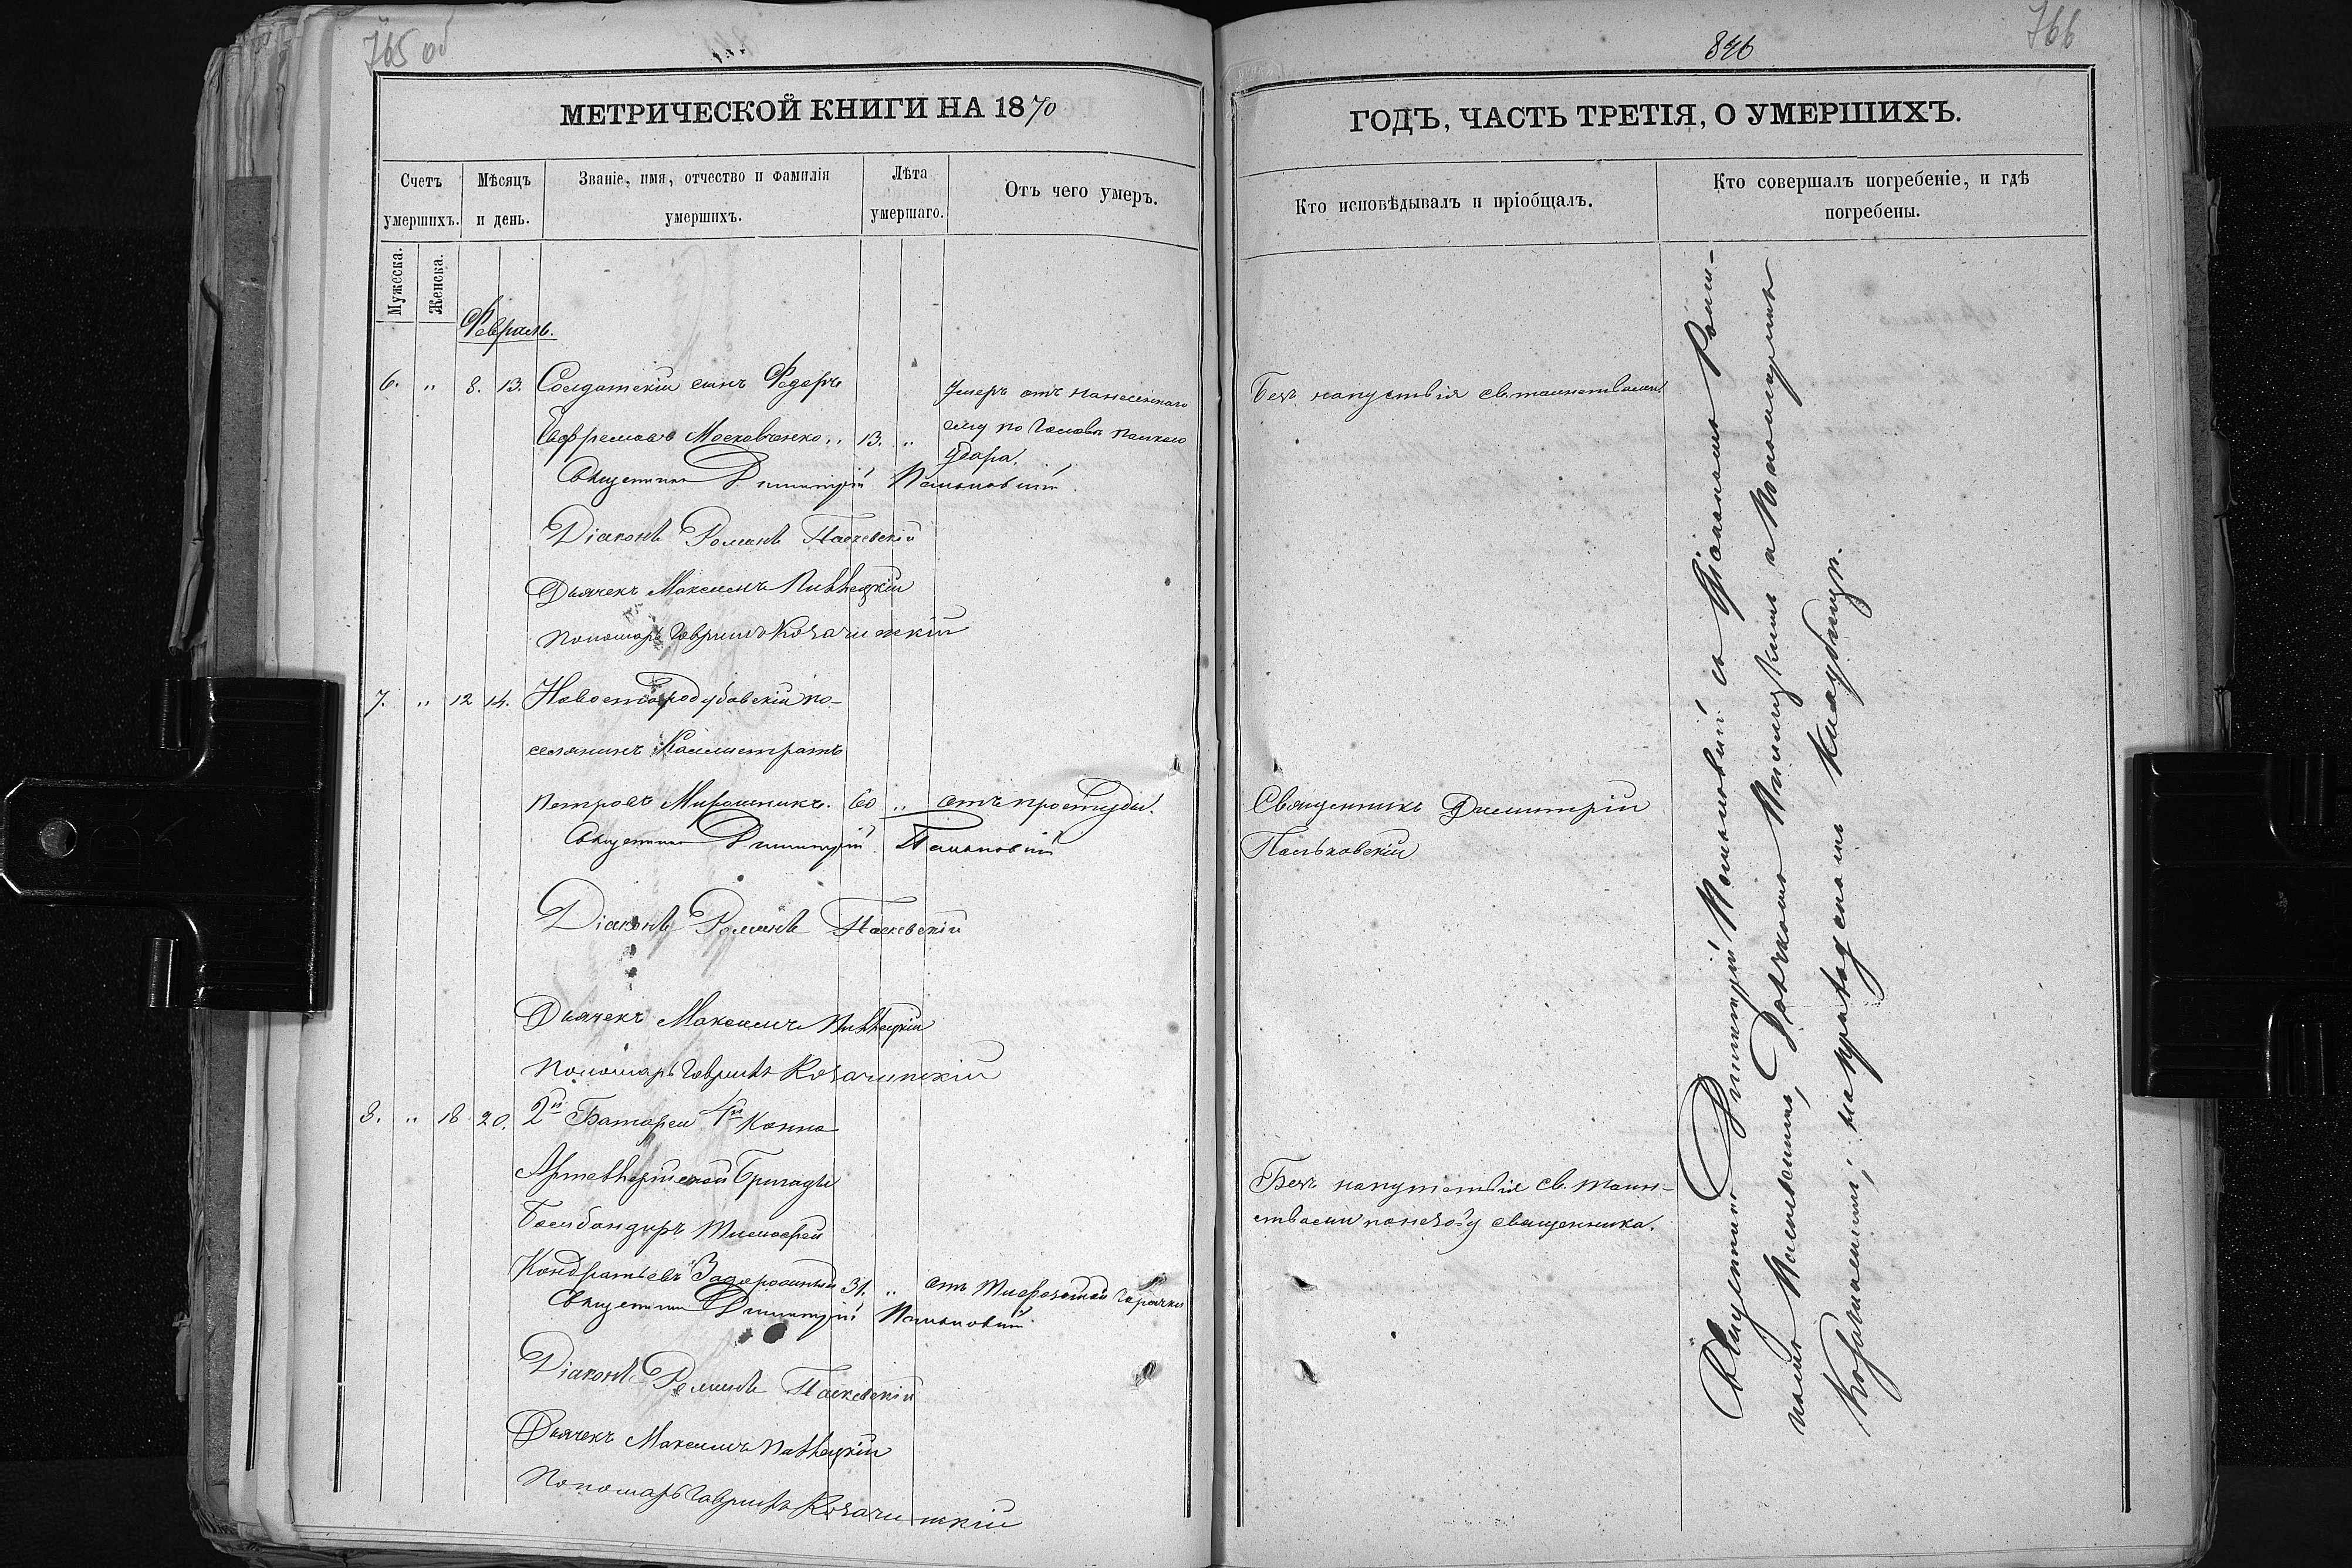 765 об
МЕТРИЧЕСКОЙ КНИГИ НА 1870
Счетъ умершихъ.
Мужеска.
Женска.
Мѣсяцъ и день.
Званіе, имя, отчество и фамилія умершихъ.
Лѣта умершаго.
Отъ чего умеръ.
Февраль.
6. " 8. 13. Солдатскій сынъ Федоръ
Евфремовъ Московченко. 13. "
Умеръ отъ нанесеннаго
ему по головѣ палкою
удара.
Священникъ Димитрій Пальковскій
Діаконъ Романъ Паскевскій
Дьячекъ Максимъ
Пономарь Гавріилъ Козачинскій
7. " 12 14. Новостародубовскій по-
селянинъ Каллистратъ
Петровъ Мирошникъ. 60 " отъ простуды.
Священникъ Димитрій Пальковскій
Діаконъ Романъ Паскевскій
Дьячекъ Максимъ
Пономарь Гавріилъ Козачинскій
8. " 18 20. 2й Батареи 4й Конно
Артиллерійской Бригады
Бомбандиръ Тимофей
Кондратьевъ Задорожный 31. " отъ Тифозной горячки
Священникъ Димитрій Пальковскій
Діаконъ Романъ Паскевскій
Дьячекъ Максимъ
Пономарь Гавріилъ Козачинскій
846
766
ГОДЪ, ЧАСТЬ ТРЕТІЯ, О УМЕРШИХЪ.
Кто исповѣдывалъ и пріобщалъ.
Кто совершалъ погребеніе, и гдѣ погребены.
Безъ напутствія св. таинствами
Священникъ Димитрій
Пальковскій
Безъ напутствія св. таин-
ствами священника.
Священникъ Димитрій Пальковскій съ Діакономъ Рома-
номъ Паскевскимъ, Дьячкомъ и Пономаремъ
Козачинскимъ, на приходскомъ кладбищѣ.